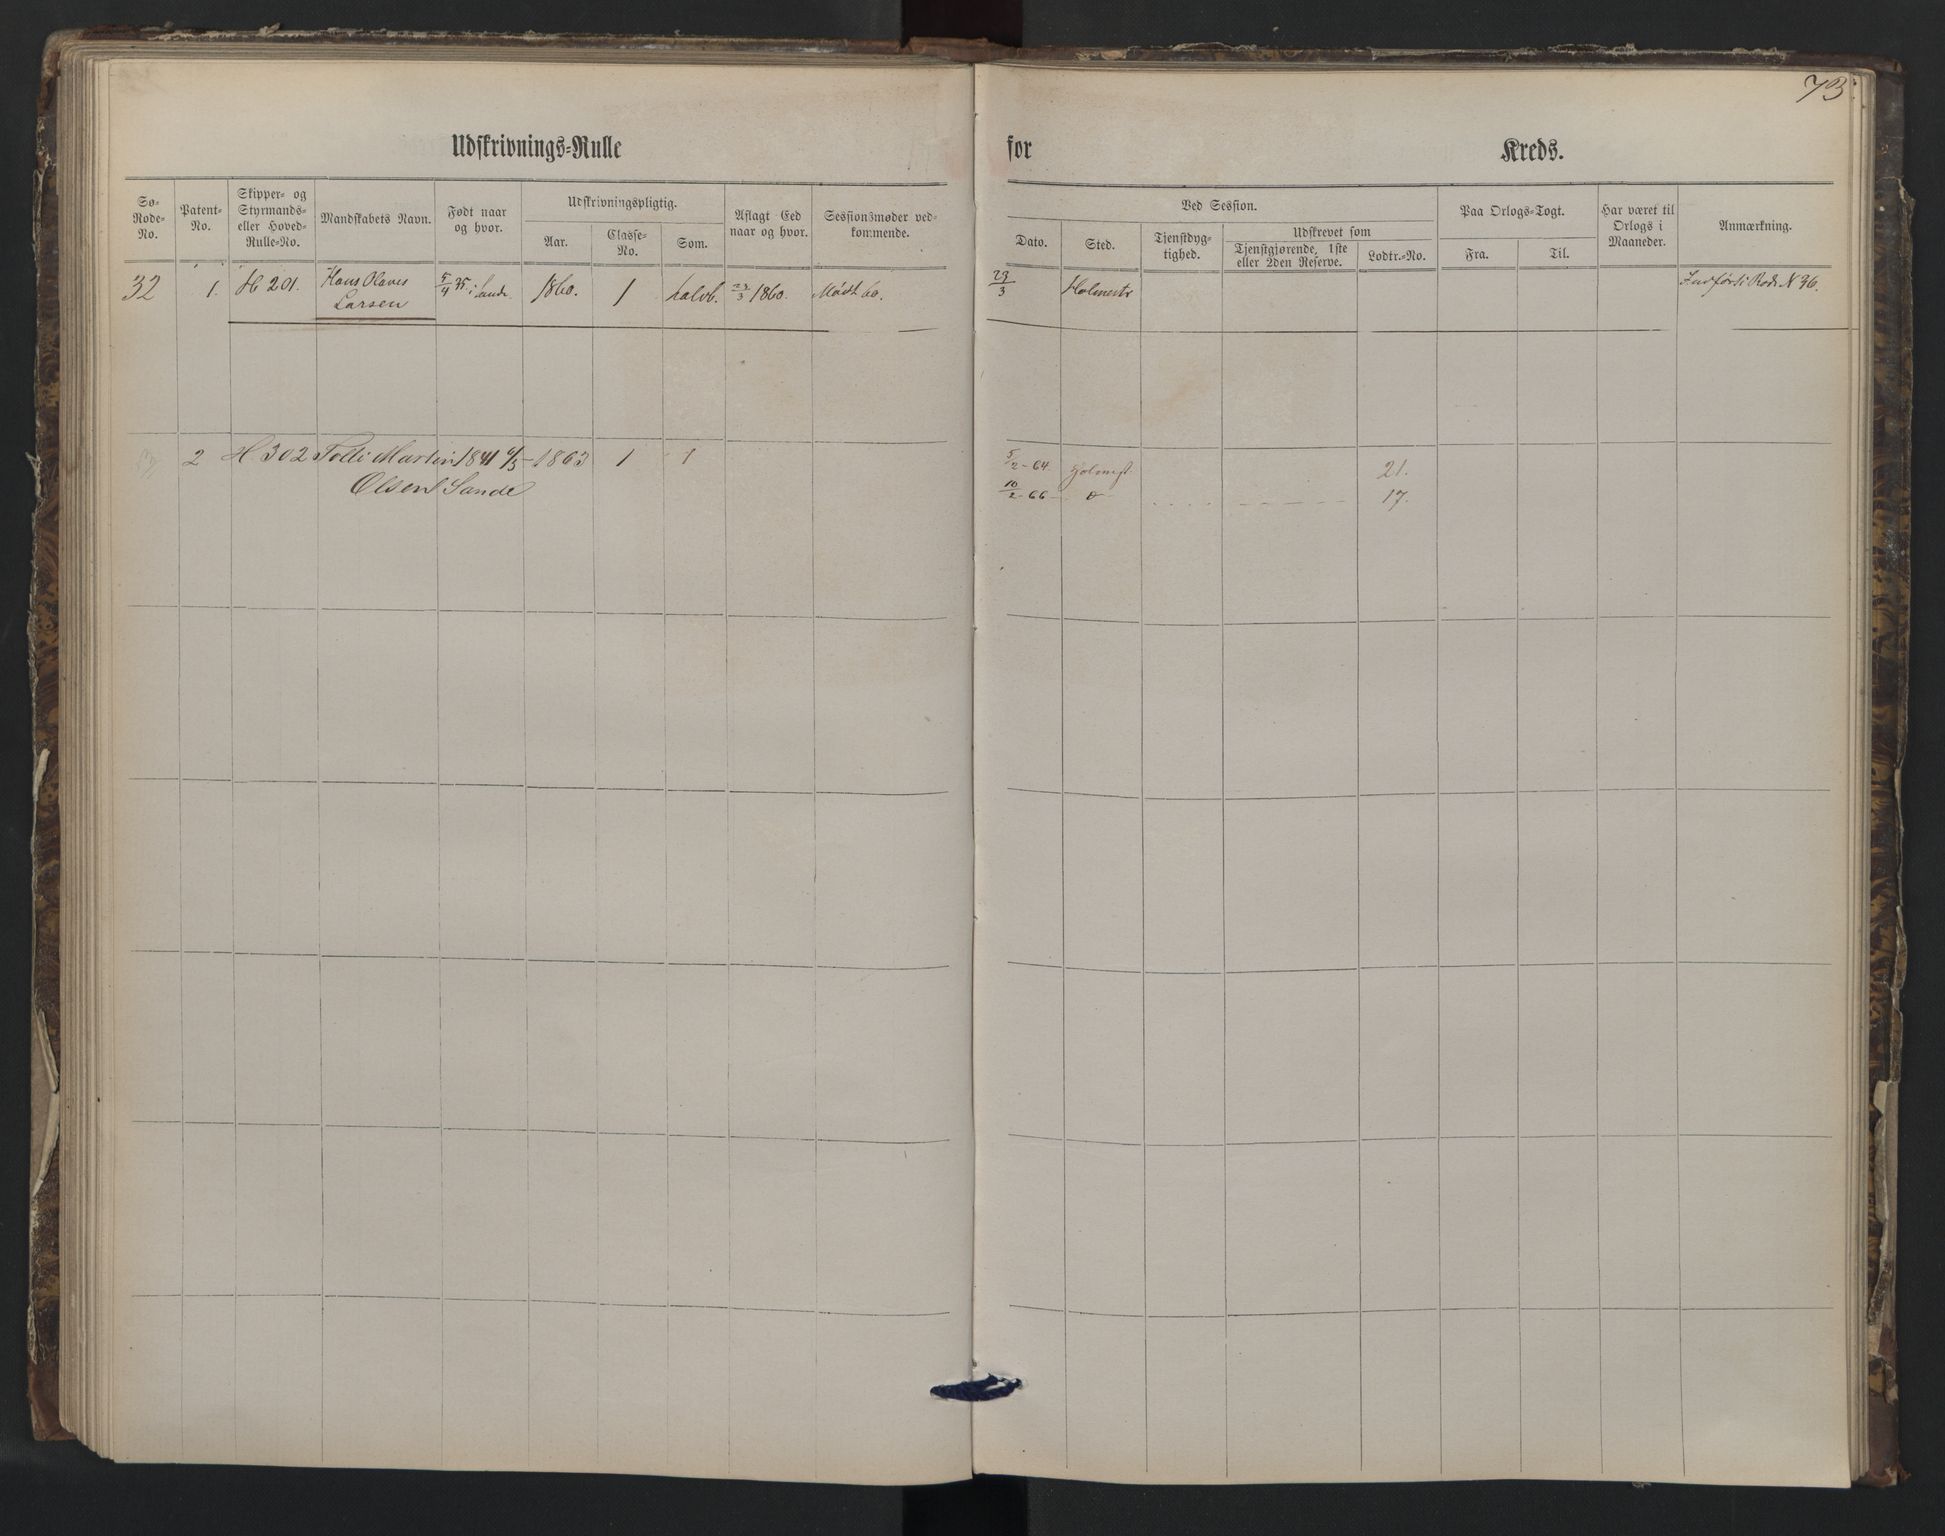 73
Udskrivnings-Rulle for Kreds.
Sø-Rode-No.
Patent-No.
Skipper- og Styrmands- eller Hoved-Rulle-No.
Mandskabets Navn.
Født naar og hvor.
Udskrivningspligtig.
Aar.
Classe-No.
Som.
Aflagt Eed naar og hvor.
Sessionsmøder vedkommende.
Ved Session.
Dato.
Sted.
Tjenstdygtighed.
Udskrevet som
Tjenstgjørende, 1ste eller 2den Reserve.
Lodtr.-No.
Paa Orlogs-Togt.
Fra.
Til.
Har været til Orlogs i Maaneder.
Anmærkning.
32 1. H 201. Hans Olaves 5/4 35. i Sande. 1860. 1 halvb. 23/3 1860. Mødt 60. 23/3 Holmestr Indført i Rode N 36.
Larsen
2 H. 302 Martin 1841 1863 1 1 5/2-64. Holmest. 21.
Olsen Sande 10/2-66 17.